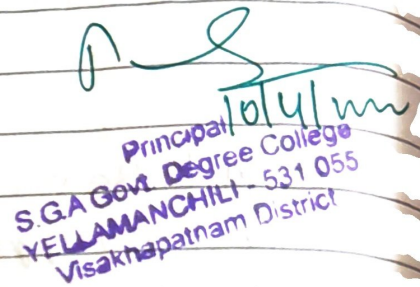 10/4/
Principal
S.G.A Govt. Degree College
YELLAMANCHILI - 531 055
Visakhapatnam District